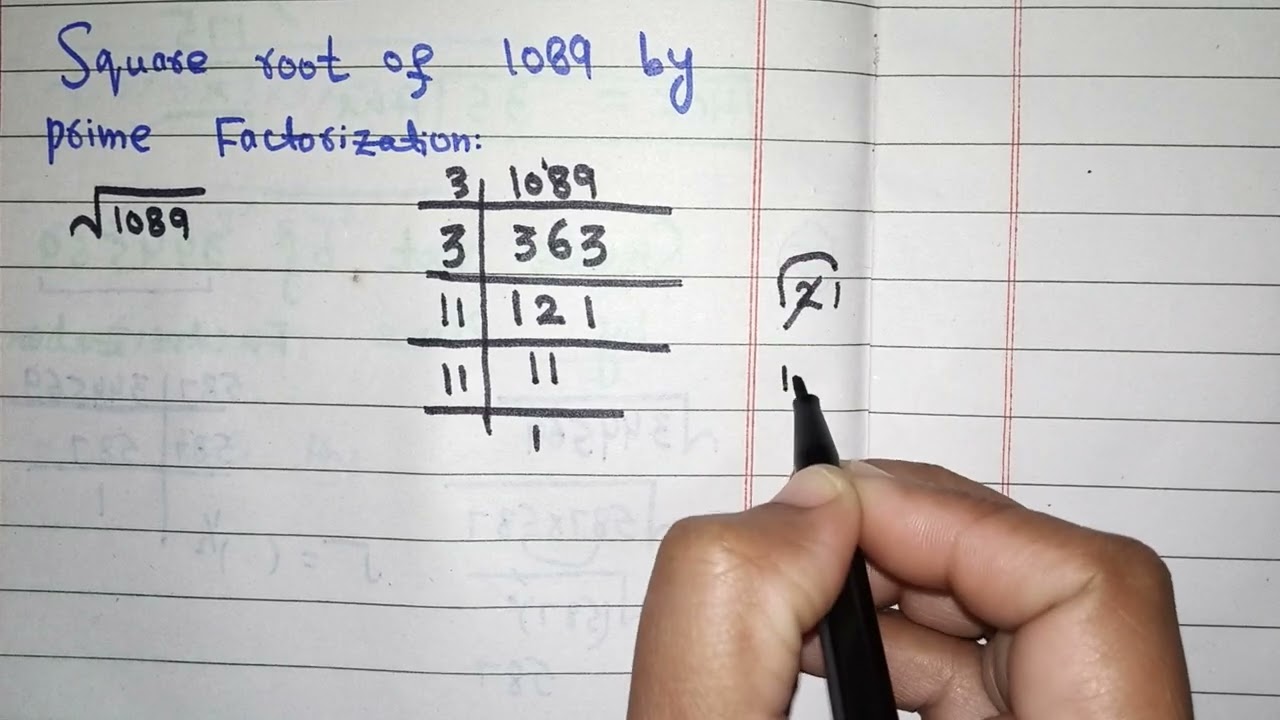 Square root of 1089 by
prime Factorization:
√1089
3 | 1089
3 | 363
11 | 121
11 | 11
1
121
1